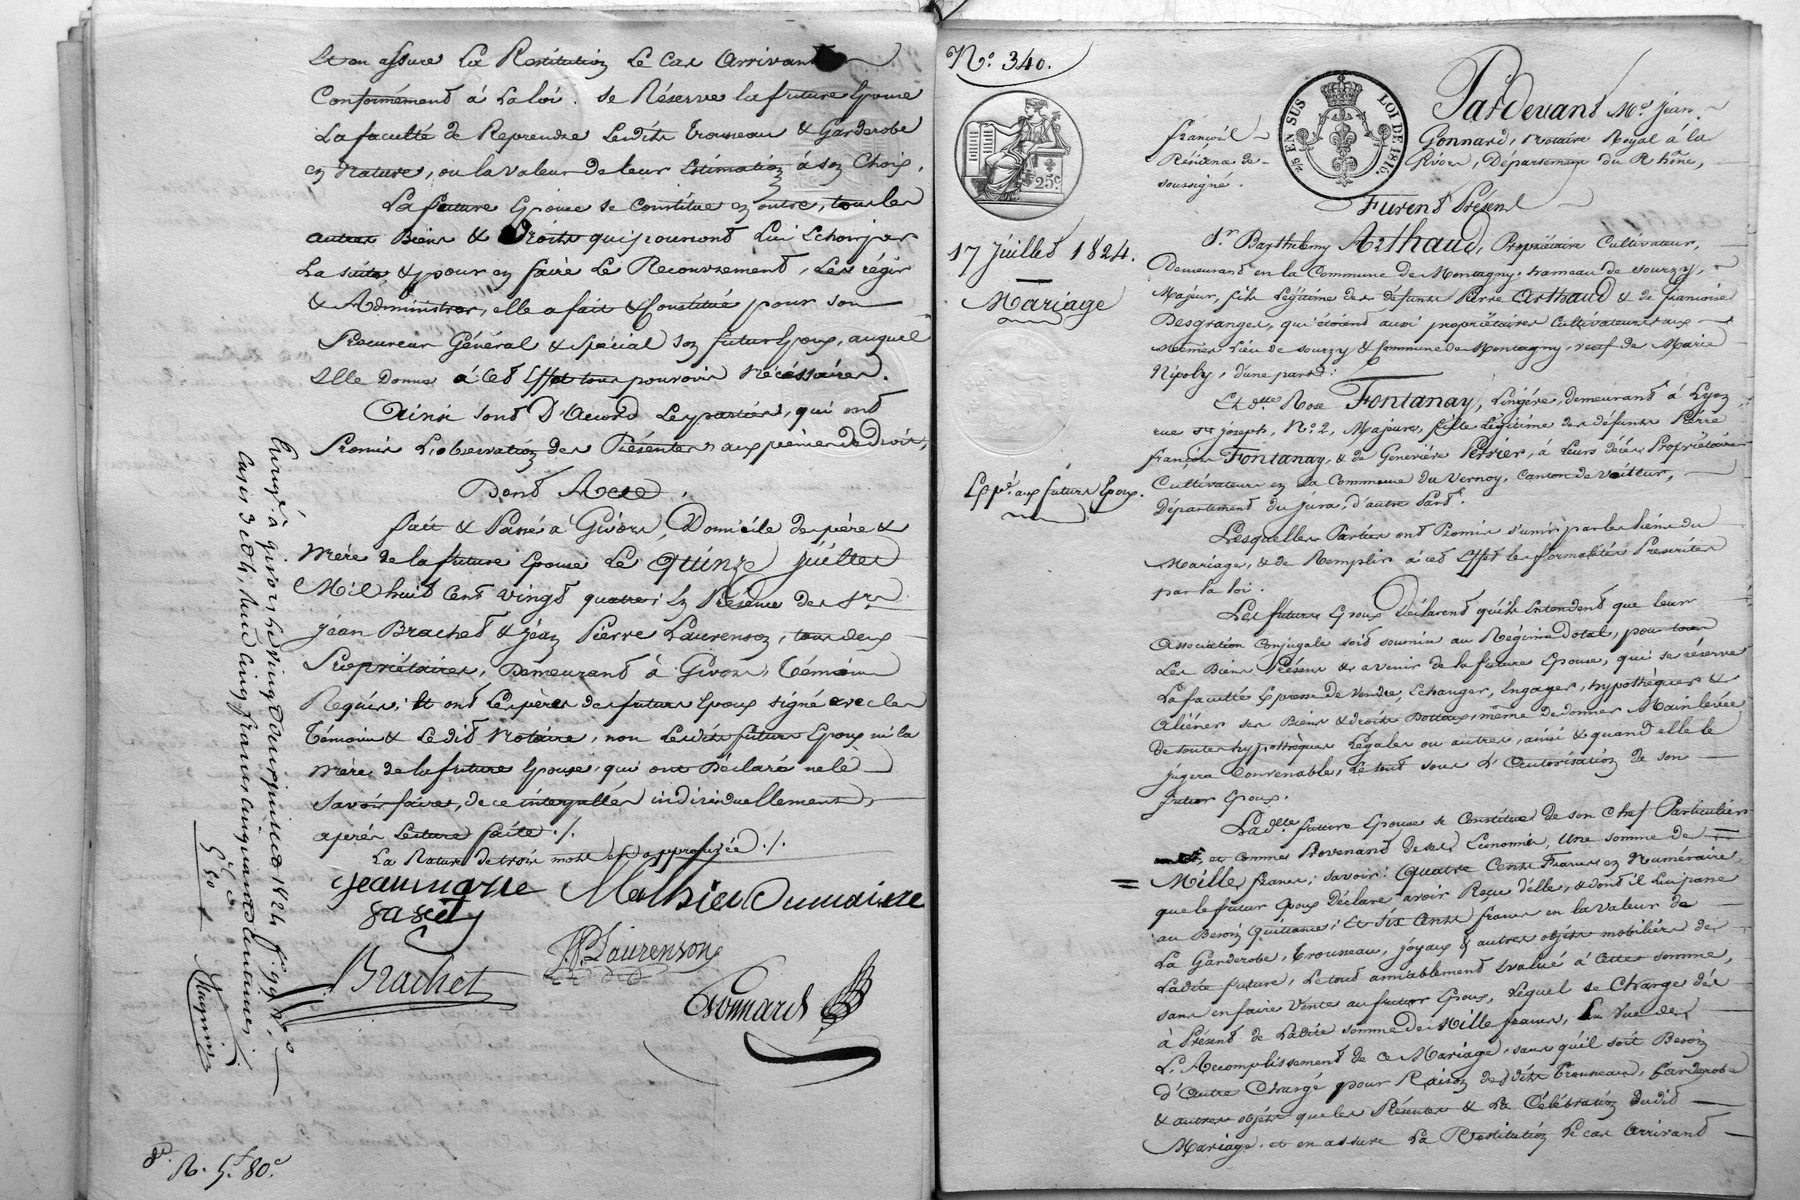 et en assure la Restitution le cas arrivant
Conformément à la loi. Se Réserve la future Epouse
La faculté de Reprendre lesdits trousseau & Garderobe
en Nature, ou la valeur de leur Estimation à son Choix.
La future Epouse se Constitue en outre, tous les
autres Biens & Droits qui pourront lui Echoir par
la suite & pour en faire le Recouvrement, les régir
& Administrer, elle a fait & Constitué pour son
Procureur Général & spécial son futur Epoux, auquel
Elle donne à cet Effet tous pouvoirs Nécéssaires.
Ainsi sont D'acord les parties, qui ont
Promis L'observation des Présentes, aux peines de Droit,
Dont Acte,
fait & Passé à Givors, Domicile des père &
Mère de la future Epouse Le Quinze juillet
Mil huit Cent vingt quatre; En Présence des Srs
Jean Brachet & Jean Pierre Laurenson, tous deux
Propriétaires, Demeurant à Givors, Témoins
Requis; Et ont Les pères des futurs Epoux signé avec les
Témoins & Ledit Notaire, non Lesdits futurs Epoux ni la
Mère de la future Epouse, qui ont Déclaré ne le
Savoir faire, de ce interpellés individuellement,
après Lecture faite ./.
La Rature de trois mots est approuvée ./.
Mathieu Dumaine
Brachet
J. P. Laurenson
Gonnard
à givors le vingt deux juillet 1824
cases 3 et 4, Reçu cinq francs cinquante centimes
R. 5f 80c
No. 340.
25c
17 Juillet 1824.
Mariage
Expé. aux futurs Epoux.
25 EN SUS
LOI DE 1816.
Pardevant Me. Jean
françois Gonnard, Notaire Royal à la
Résidence de Givors, Département du Rhône,
soussigné.
Furent Présens
Sr. Barthelemy Arthaud, Propriétaire Cultivateur,
Demeurant en la Commune de Montagny, hameau de Sourzy,
Majeur, fils Légitime des défunts Pierre Arthaud & de Françoise
Desgranges, qui étoient aussi propriétaires Cultivateurs aux
mêmes Lieu de Sourzy & Commune de Montagny, veuf de Marie
d'une part:
Et dlle. Rose Fontanay, Lingère, demeurant à Lyon
rue St. Joseph, No. 2, Majeure, fille Légitime des défunts Pierre
françois Fontanay, & de Geneviève Perrier, à leurs décès Propriétaires
Cultivateurs en la Commune du Vernoy, Canton de
Département du Jura, d'autre Part.
Lesquelles Parties ont Promis s'unir par les liens du
Mariage, & de Remplir à cet Effet les formalités Prescrites
par la loi.
Les futurs Epoux Déclarent qu'ils Entendent que leur
Association Conjugale soit soumise au Régime Dotal, pour tous
Les Biens Présens & avenir de la future Epouse, qui se réserve
La faculté Expresse de vendre, Echanger, Engager, hypothéquer &
Aliéner ses Biens & droits Dottaux, même de donner Mainlevée
De toutes hypothèques Légales ou autres, ainsi & quand elle le
jugera Convenable, Le tout sous L'Autorisation de son
futur Epoux.
Ladlle. future Epouse se Constitue de son Chef Particulier
et comme Provenant de ses Economies, Une somme de
Mille francs; savoir: Quatre Cents Francs en Numéraire
que le futur Epoux Déclare avoir Reçu d'elle, & dont il lui passe
au Besoin Quittance; Et Six Cents francs en la valeur de
La Garderobe, Trousseau, joyaux & autres objets mobiliers de
Ladite future, Le tout amiablement Evalué à cette somme,
sans en faire Vente au futur Epoux, Lequel se Charge dès
à Présent de Ladite somme de Mille francs, En Vue de
L'Accomplissement de ce Mariage, sans qu'il soit Besoin
d'Autre Charge pour Raison desdits Trousseau, Garderobe
& autres objets que les Présentes & La Célébration dudit
Mariage, et en assure La Restitution le cas arrivant